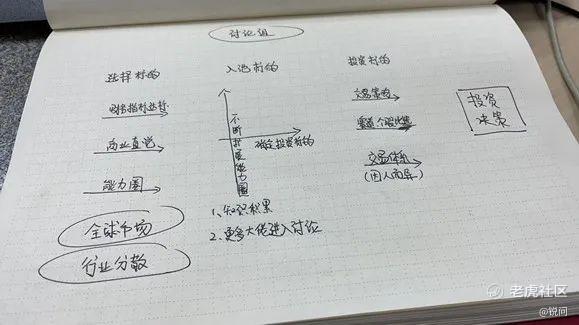 讨论组
选择标的
入池标的
投资标的
财务指标达标
商业直觉
能力圈
不断扩展能力圈
确定投资标的
交易策略
交易体系
(因人而异)
投资
决策
全球市场
行业分散
1、知识积累
2、更多大佬进入讨论
老虎社区
@锐问